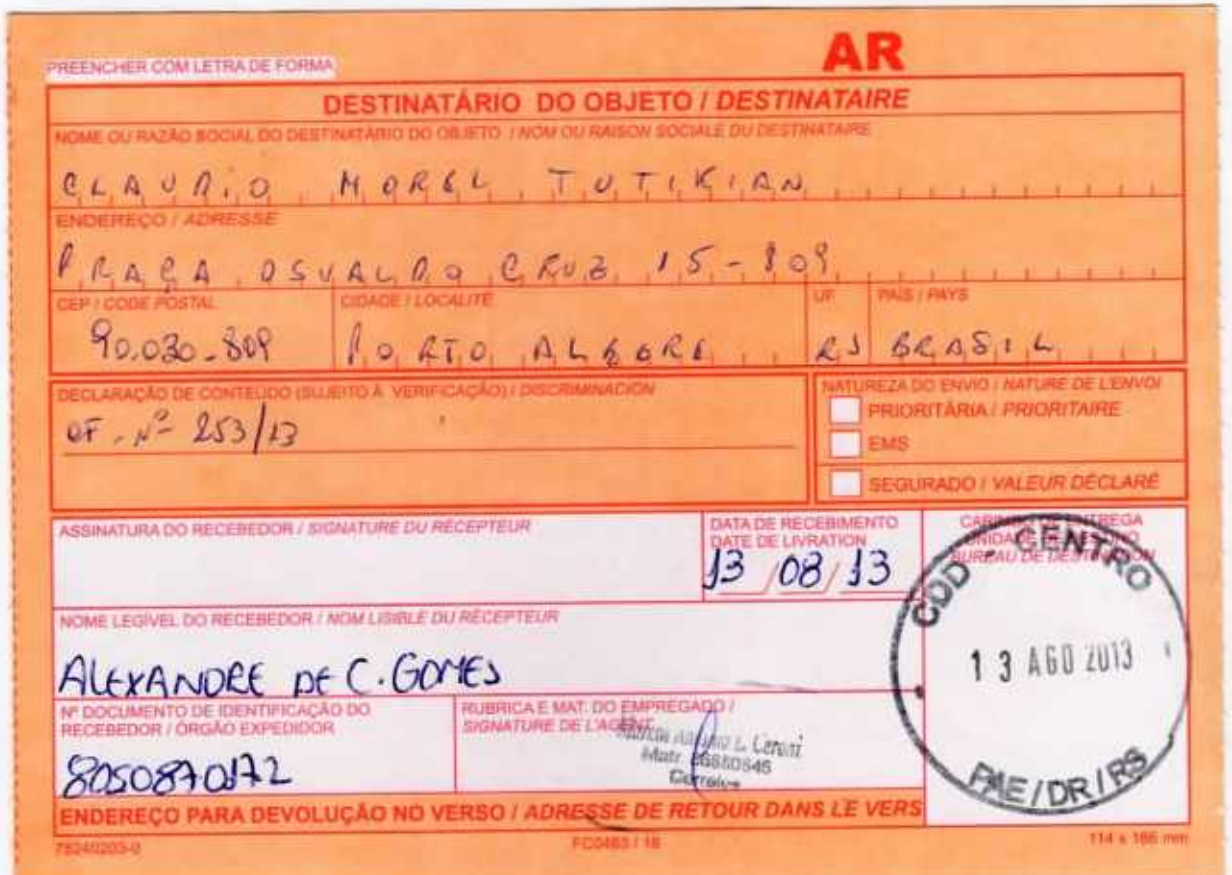 PREENCHER COM LETRA DE FORMA
AR
DESTINATÁRIO DO OBJETO / DESTINATAIRE
NOME OU RAZÃO SOCIAL DO DESTINATÁRIO DO OBJETO / NOM OU RAISON SOCIALE DU DESTINATAIRE
CLAUDIO MOREL TUTIKIAN
ENDEREÇO / ADRESSE
PRAÇA OSVALDO CRUZ 15-809
CEP / CODE POSTAL CIDADE / LOCALITÉ UF PAÍS / PAYS
90.030-809 PORTO ALEGRE RS BRASIL
DECLARAÇÃO DE CONTEÚDO (SUJEITO À VERIFICAÇÃO) / DISCRIMINACION
OF. Nº 253/13
NATUREZA DO ENVIO / NATURE DE L'ENVOI
PRIORITÁRIA / PRIORITAIRE
EMS
SEGURADO / VALEUR DÉCLARÉ
ASSINATURA DO RECEBEDOR / SIGNATURE DU RÉCEPTEUR
DATA DE RECEBIMENTO
DATE DE LIVRATION
13/08/13
CARIMBO DE ENTREGA
UNIDADE DE DESTINO
BUREAU DE DESTINATION
CDD - CENTRO
13 AGO 2013
PAE/DR/RS
NOME LEGÍVEL DO RECEBEDOR / NOM LISIBLE DU RÉCEPTEUR
ALEXANDRE DE C. GOMES
Nº DOCUMENTO DE IDENTIFICAÇÃO DO
RECEBEDOR / ÓRGÃO EXPEDIDOR
8050870172
RUBRICA E MAT. DO EMPREGADO /
SIGNATURE DE L'AGENT
L. Ceroni
Matr.
Correios
ENDEREÇO PARA DEVOLUÇÃO NO VERSO / ADRESSE DE RETOUR DANS LE VERS
75240203-0 FC0463 / 16 114 x 186 mm